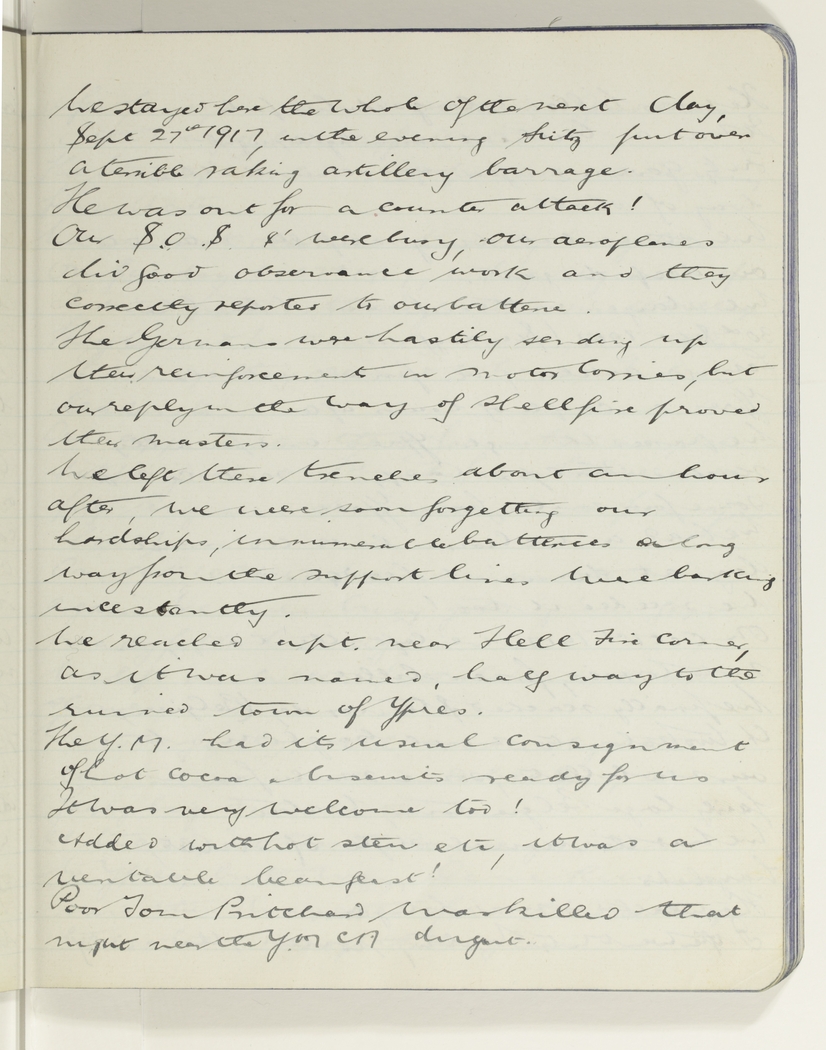 We stayed here the whole of the next day,
Sept 27th 1917, in the evening Fritz put over
a terrible raking artillery barrage.
He was out for a counter attack!
Our S.O.S. s' were busy, our aeroplanes
did good observance work and they
correctly reported to our batterie.
The Germans were hastily sending up
their reinforcements in motor lorries, but
our reply in the way of shellfire proved
their masters.
We left these trenches about an hour
after, we were soon forgetting our
hardships, innumerable batteries a long
way from the support lines were barking
incestantly.
We reached a pt. near Hell Fire Corner,
as it was named, half way to the
ruined town of Ypres.
The Y.M. had its usual consignment
of hot cocoa & biscuits ready for us
It was very welcome too!
Added with hot stew etc, it was a
veritable beanfeast!
Poor Tom Pritchard was killed that
night near the YMCA dugout.